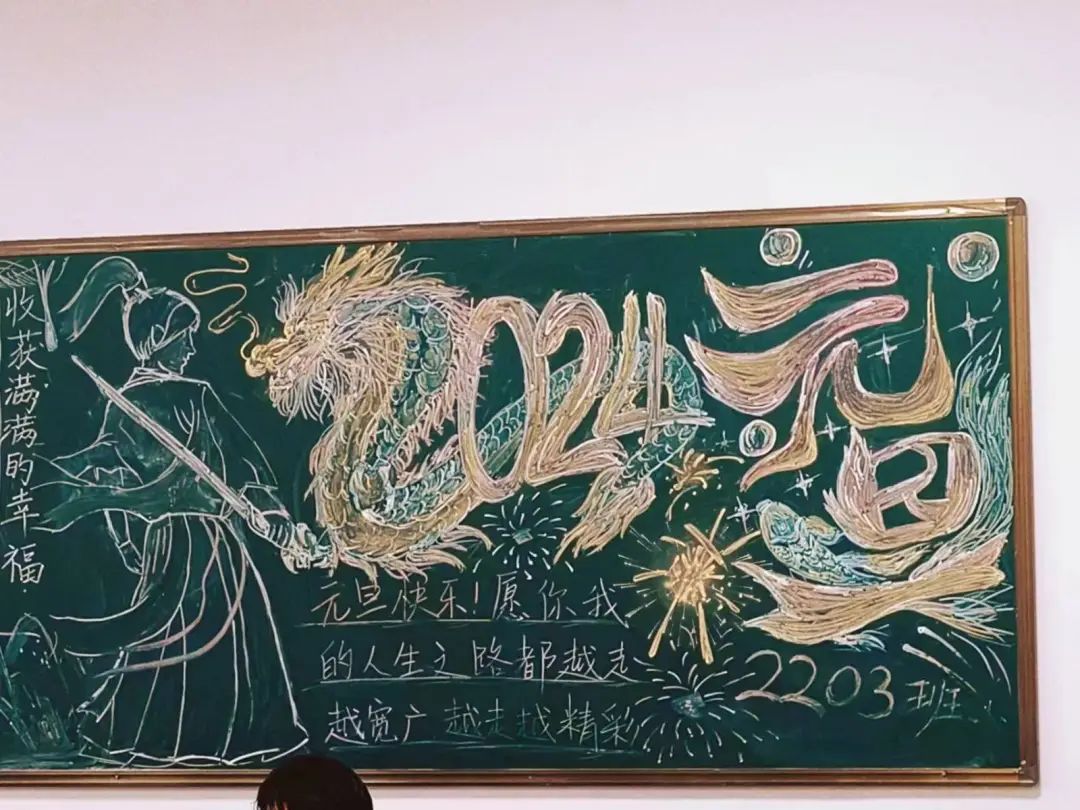 收获满满的幸福
2024
元旦
元旦快乐！愿你我
的人生之路都越走
越宽广越走越精彩
2203班